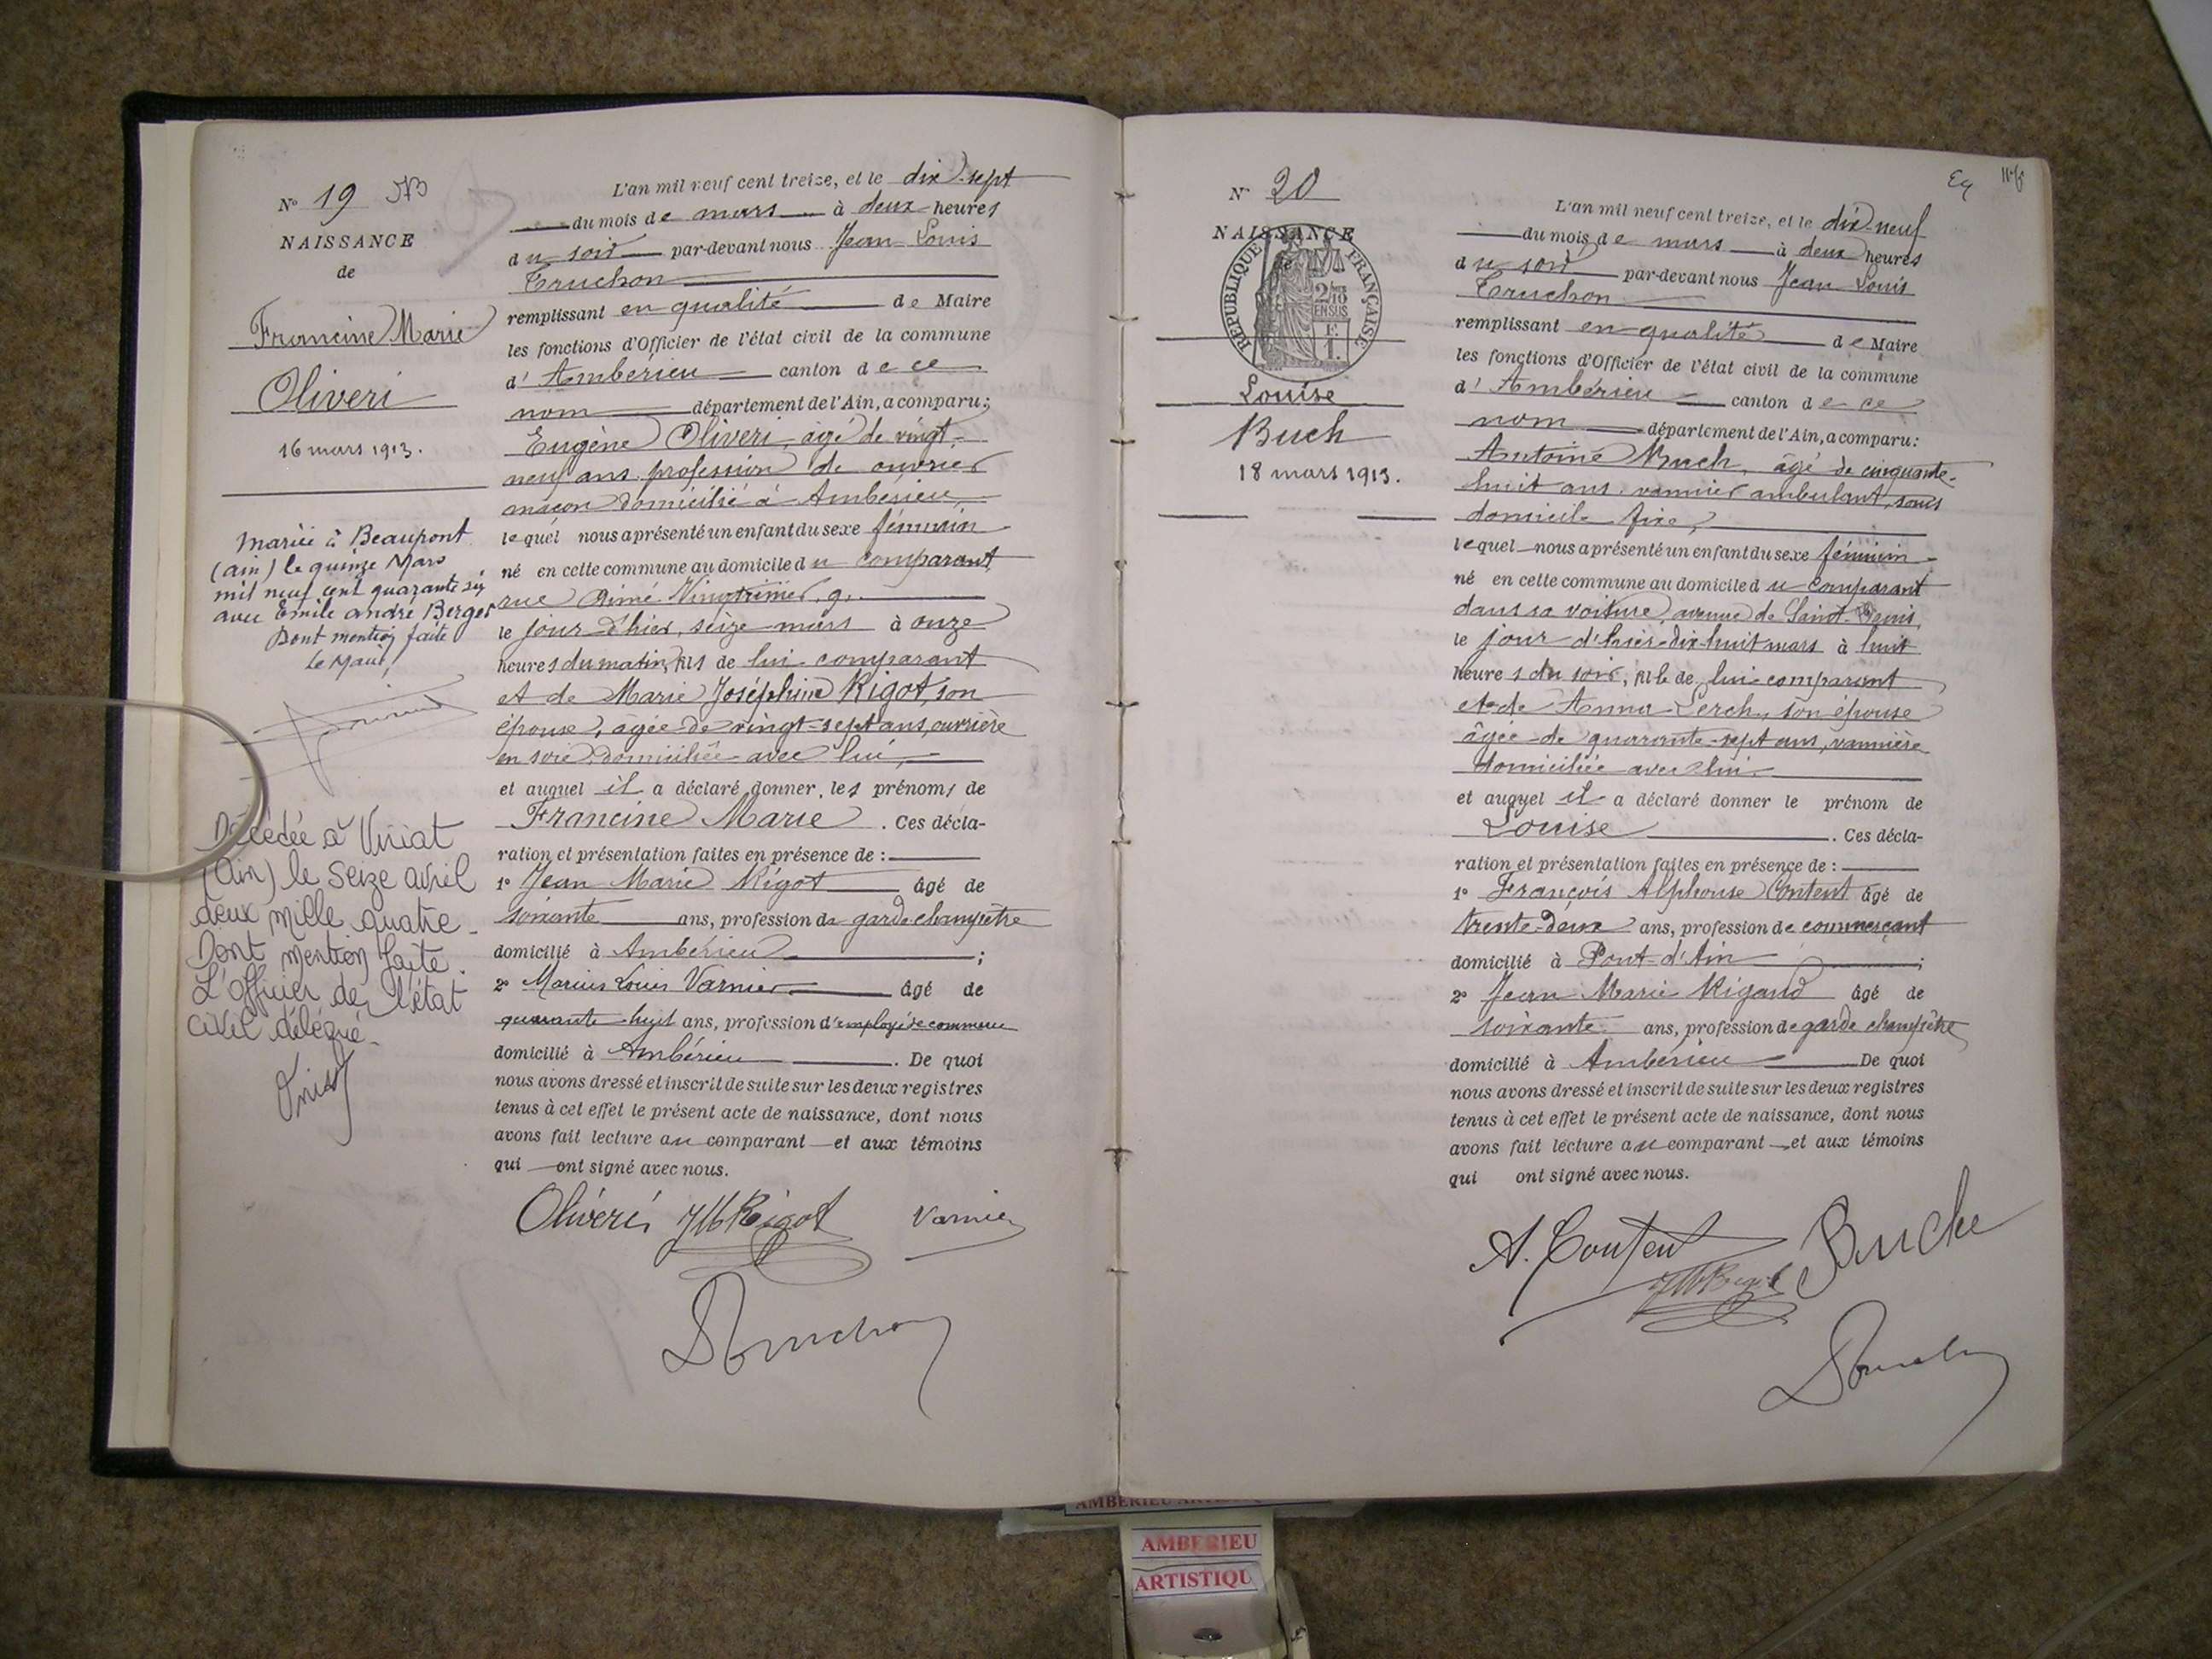 N° 19
NAISSANCE
de
Francine Marie
Oliveri
16 mars 1913.
Mariée à Beaupont
(ain) le quinze Mars
mil neuf cent quarante six
avec Emile andré Berger
Dont mention faite
Le Maire,
Décédée à Viriat
(Ain) le seize avril
deux mille quatre.
Dont mention faite.
L'officier de l'état
civil délégué.
L'an mil neuf cent treize, et le dix-sept
du mois de mars à deux heures
du soir par-devant nous Jean Louis
Truchon
remplissant en qualité de Maire
les fonctions d'Officier de l'état civil de la commune
d'Ambérieu canton de ce
nom département de l'Ain, a comparu :
Eugène Oliveri, âgé de vingt-
neuf ans, profession de ouvrier
maçon domicilié à Ambérieu,
lequel nous a présenté un enfant du sexe féminin
né en cette commune au domicile du comparant
rue Aimé Vingtrinier, 9,
le jour d'hier, seize mars à onze
heures du matin, fils de lui comparant
et de Marie Joséphine Rigot, son
épouse, âgée de vingt-sept ans, ouvrière
en soie, domiciliée avec lui,
et auquel il a déclaré donner les prénoms de
Francine Marie. Ces décla-
ration et présentation faites en présence de :
1° Jean Marie Rigot âgé de
soixante ans, profession de garde champêtre
domicilié à Ambérieu ;
2° Marius Louis Varnier âgé de
quarante-huit ans, profession d'employé de commerce
domicilié à Ambérieu. De quoi
nous avons dressé et inscrit de suite sur les deux registres
tenus à cet effet le présent acte de naissance, dont nous
avons fait lecture au comparant et aux témoins
qui ont signé avec nous.
Oliveri JM Rigot Varnier
Truchon
N° 20
NAISSANCE
REPUBLIQUE FRANÇAISE
2/10
EN SUS
F.
1.
Louise
Buch
18 mars 1913.
L'an mil neuf cent treize, et le dix-neuf
du mois de mars à deux heures
du soir par-devant nous Jean Louis
Truchon
remplissant en qualité de Maire
les fonctions d'Officier de l'état civil de la commune
d'Ambérieu canton de ce
nom département de l'Ain, a comparu :
Antoine Buch, âgé de cinquante-
huit ans, vannier ambulant, sans
domicile fixe,
lequel nous a présenté un enfant du sexe féminin
né en cette commune au domicile du comparant
dans sa voiture, avenue de Saint-Denis,
le jour d'hier dix-huit mars à huit
heures du soir, fille de lui comparant
et de Anna Lerch, son épouse
âgée de quarante-sept ans, vannière
domiciliée avec lui
et auquel il a déclaré donner le prénom de
Louise. Ces décla-
ration et présentation faites en présence de :
1° François Alphonse Content âgé de
trente-deux ans, profession de commerçant
domicilié à Pont-d'Ain ;
2° Jean Marie Rigaud âgé de
soixante ans, profession de garde champêtre
domicilié à Ambérieu De quoi
nous avons dressé et inscrit de suite sur les deux registres
tenus à cet effet le présent acte de naissance, dont nous
avons fait lecture au comparant et aux témoins
qui ont signé avec nous.
A. Content Buche
JM Rigot
Truchon
AMBERIEU
AMBERIEU
ARTISTIQU